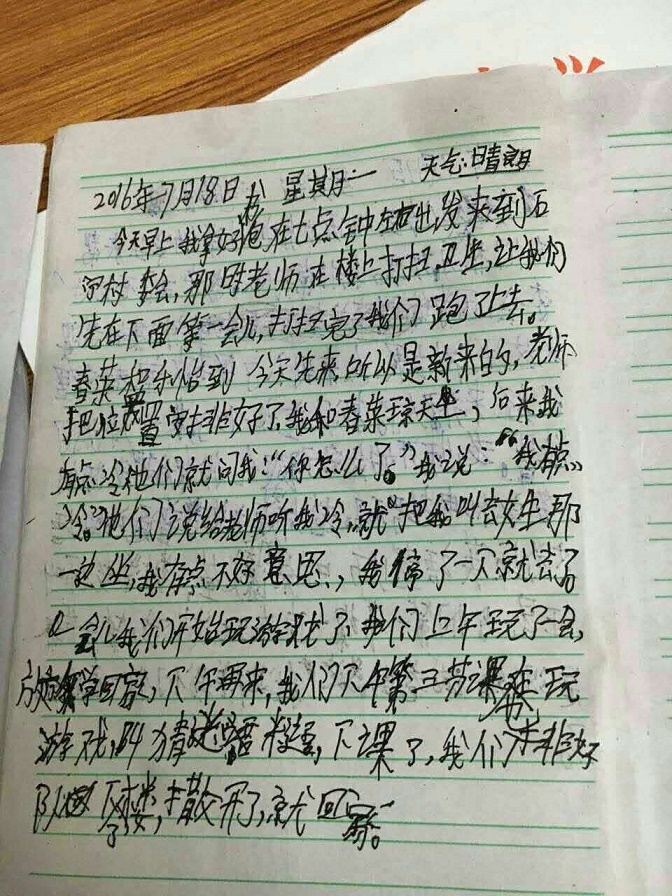 2016年7月18日 星期一 天气:晴朗
今天早上我拿好包在七点钟左右出发来到石
河村委会,那时老师在楼上打扫卫生,让我们
先在下面等一会儿,打扫完了我们跑了上去。
春菜和怡到今天先来所以是新来的,老师
把位置安排好了,我和春菜琼天坐,后来我
有点冷他们就问我:“你怎么了。”我说:“我有点
冷。”他们说给老师听我冷,就把我叫去女生那
一边坐,我有点不好意思,我停了一下就去了。
会儿我们开始玩游戏了,我们上午玩了一会,
放学回家,下午再来,我们下午第三节课在玩
游戏,叫猜谜语,下课了,我们排好
队下楼,散开了,就回家。